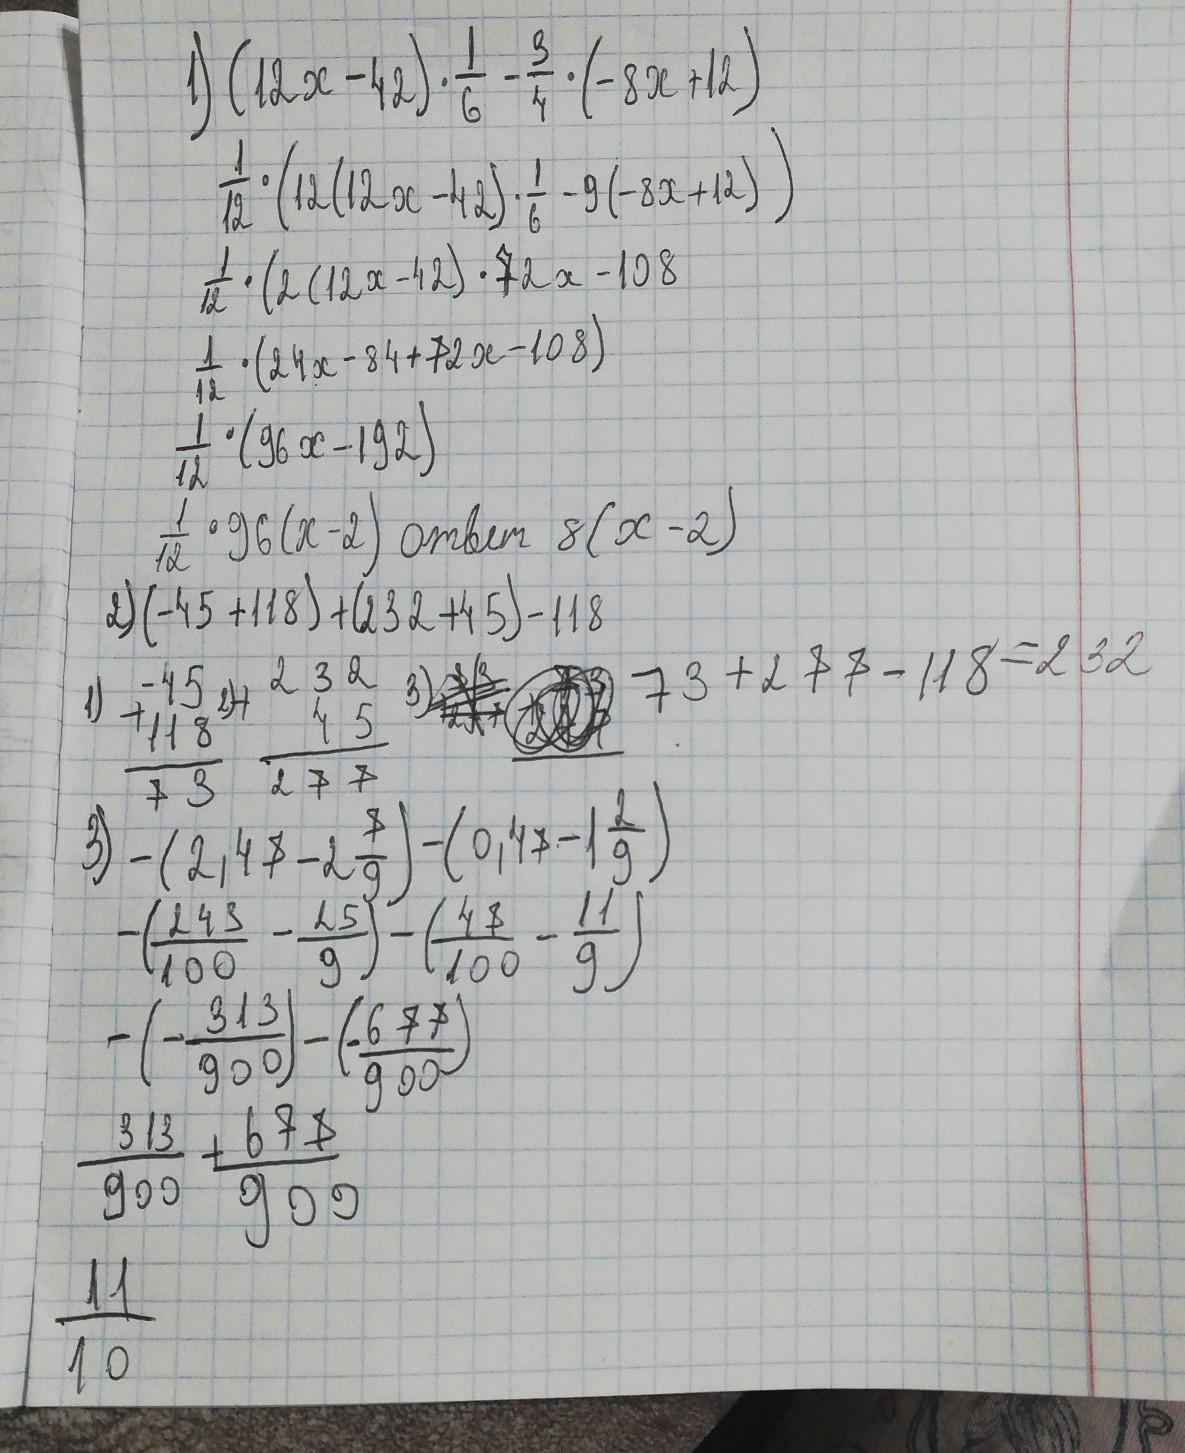 1) (12x-42)·1/6-3/4·(-8x+12)
1/12·(12(12x-42)·1/6-9(-8x+12))
1/12·(2(12x-42)·72x-108
1/12·(24x-84+72x-108)
1/12·(96x-192)
1/12·96(x-2) ответ 8(x-2)
2) (-45+118)+(232+45)-118
1) -45 + 118 = 73 2) 232 + 45 = 277 3) 73+277-118=232
3) -(2,47-2 7/9)-(0,47-1 2/9)
-(243/100-25/9)-(47/100-11/9)
-(-313/900)-(-677/900)
313/900+677/900
11/10